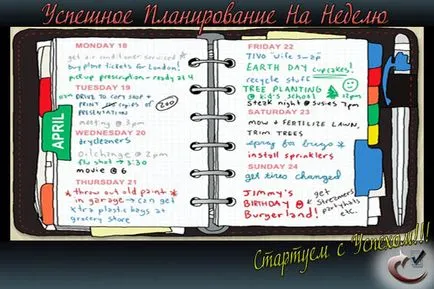 Успешное Планирование На Неделю
APRIL
MONDAY 18
get air conditioner serviced
buy plane tickets for London!
pick up prescription - ready at 4
TUESDAY 19
DRIVE TO COPY SHOP +
PRINT 200 COPIES OF
PRESENTATION
200
meeting @ 3pm
WEDNESDAY 20
drycleaners
Oil change @ 2pm
flu shot → 3:30
movie @ 6
THURSDAY 21
* throw out old paint *
in garage → can get
xtra plastic bags at
grocery store
FRIDAY 22
TIVO "wife swap"
EARTH DAY cupcakes!
recycle stuff
TREE PLANTING
@ KID'S SCHOOL 2pm
steak night @ Susies 7pm
SATURDAY 23
mow + FERTILIZE LAWN,
TRIM TREES
spray for bugs
install sprinklers
SUNDAY 24
get tires changed
JIMMY'S
BIRTHDAY @
Burgerland!
get
streamers
partyhats
etc.
Стартуем с Успехом!!!